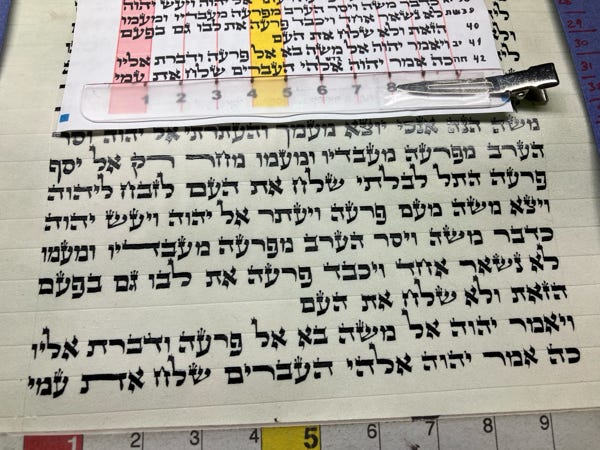 מפרעה מעבדיו ומעמו
נשאר אחד ויכבד פרעה את לבו גם בפעם
הזאת ולא שלח את העם 40
ויאמר יהוה אל משה בא אל פרעה ודברת אליו 41
כה אמר יהוה אלהי העברים שלח את עמי 42
1 2 3 4 5 6 7 8
משה הנה אנכי יוצא מעמך והעתרתי אל יהוה וסר
הערב מפרעה מעבדיו ומעמו מחר רק אל יסף
פרעה התל לבלתי שלח את העם לזבח ליהוה
ויצא משה מעם פרעה ויעתר אל יהוה ויעש יהוה
כדבר משה ויסר הערב מפרעה מעבדיו ומעמו
לא נשאר אחד ויכבד פרעה את לבו גם בפעם
הזאת ולא שלח את העם
ויאמר יהוה אל משה בא אל פרעה ודברת אליו
כה אמר יהוה אלהי העברים שלח את עמי
1 2 3 4 5 6 7 8 9
29
30
31